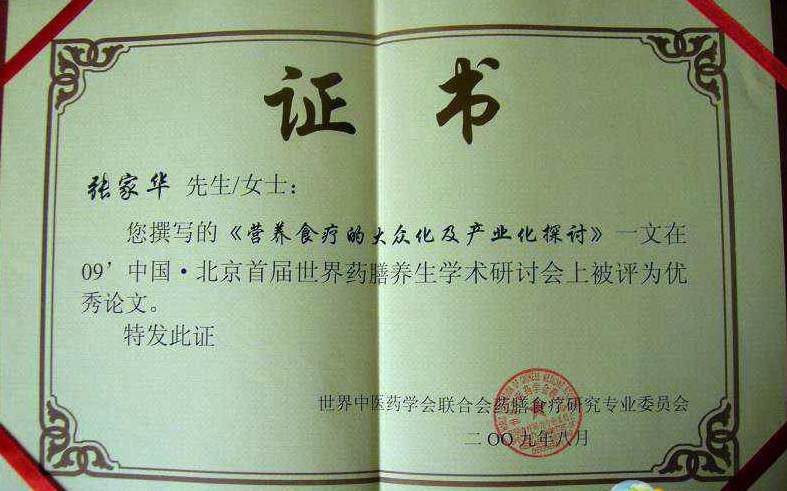 证书
张家华 先生/女士：
您撰写的《营养食疗的大众化及产业化探讨》一文在
09’中国·北京首届世界药膳养生学术研讨会上被评为优
秀论文。
特发此证
世界中医药学会联合会药膳食疗研究专业委员会
二OO九年八月